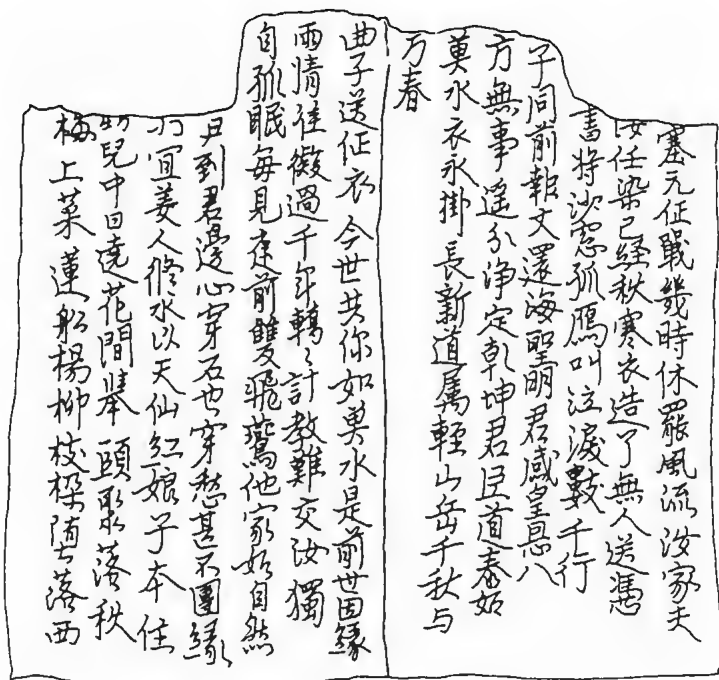 塞元征戰幾時休罷風流汝家夫
任染已經秋寒衣造了無人送馮
書將沙窓孤鴈叫泣淚數千行
子同前報文還海聖明君感皇恩八
方無事遥分净定乾坤君臣道泰如
奠水衣永掛長新道属輕山岳千秋与
万春
曲子送征衣今世共你如奠水是前世因緣
兩情准擬過千年轉〻計教難交汝獨
自孤眠每見庭前雙飛鷰他家好自然
尹到君邊心穿石也穿愁甚不團緣
宜姜人修水以天仙紅娘子本住
兒中日遶花間舉頤聚落秩
梅上菜蓮船楊柳枝梁堕七落西